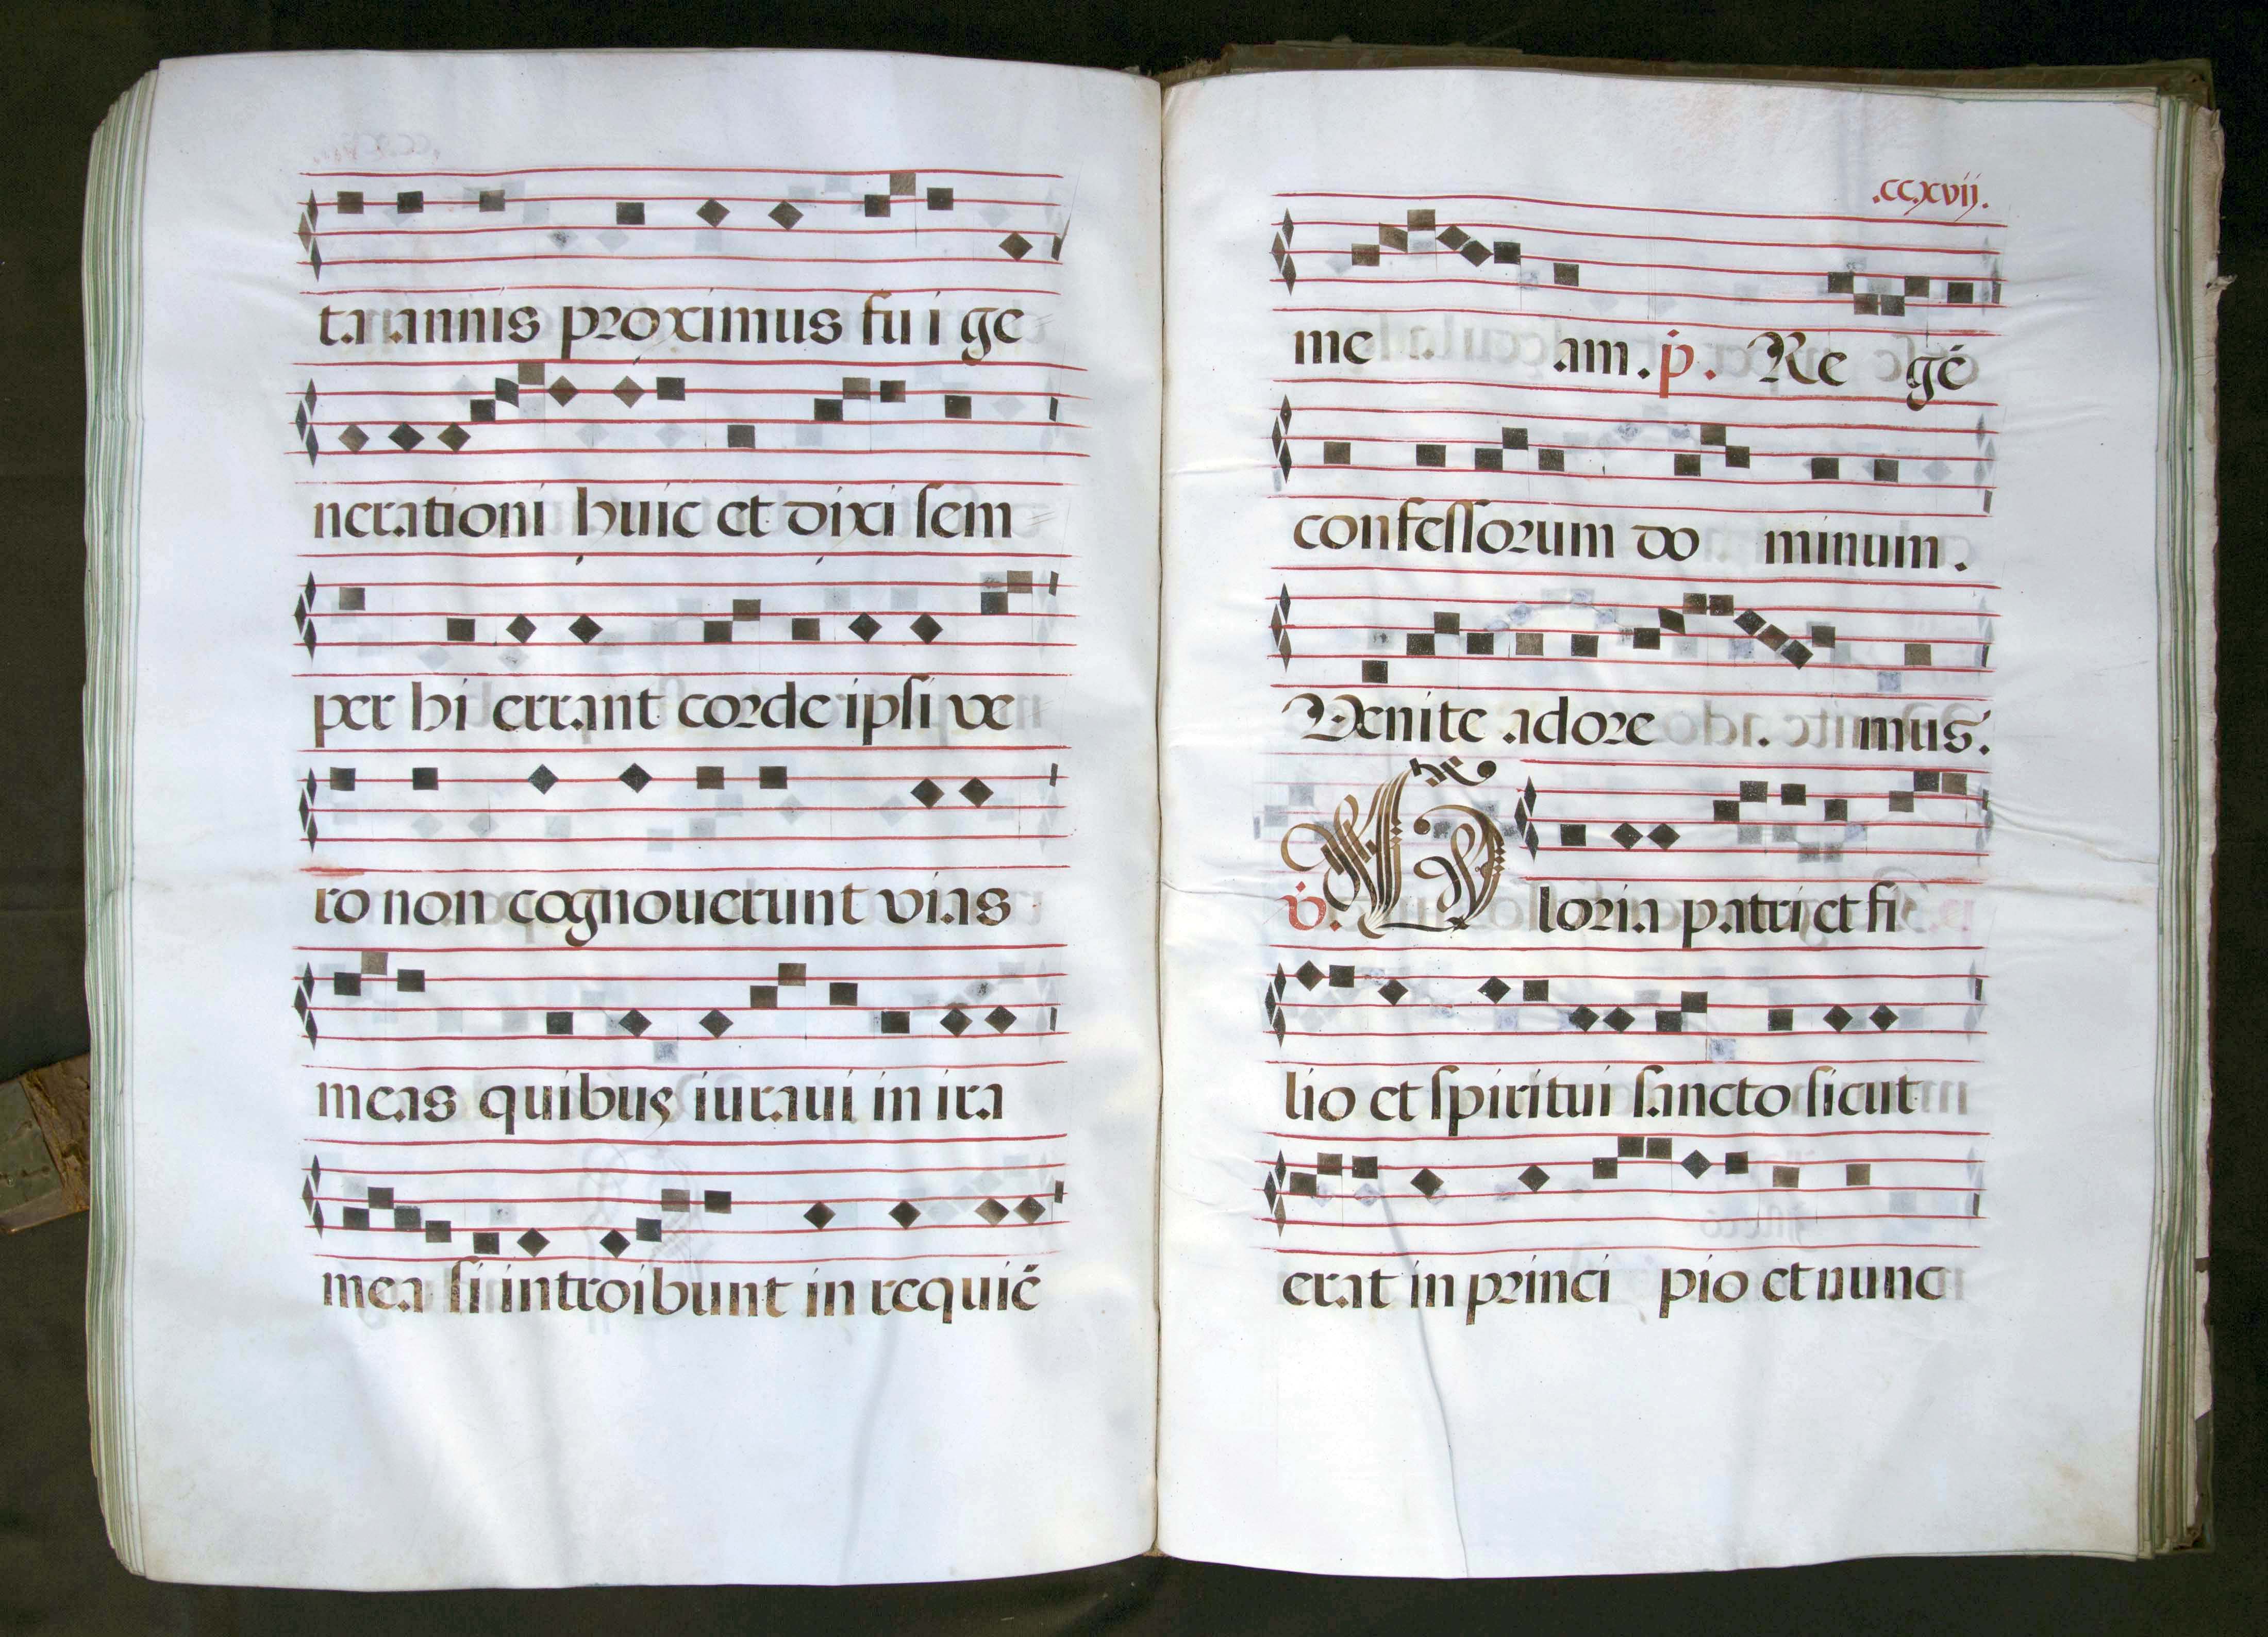 ta annis proximus fui ge
nerationi huic et dixi sem
per hi errant corde ipsi ve
ro non cognouerunt vias
meas quibus iuraui in ira
mea si introibunt in requiē
.ccxvij.
me am. p. Re gē
confessorum do minum.
Venite adore mus.
v. Gloria patri et fi
lio et spiritui sancto sicut
erat in princi pio et nunc